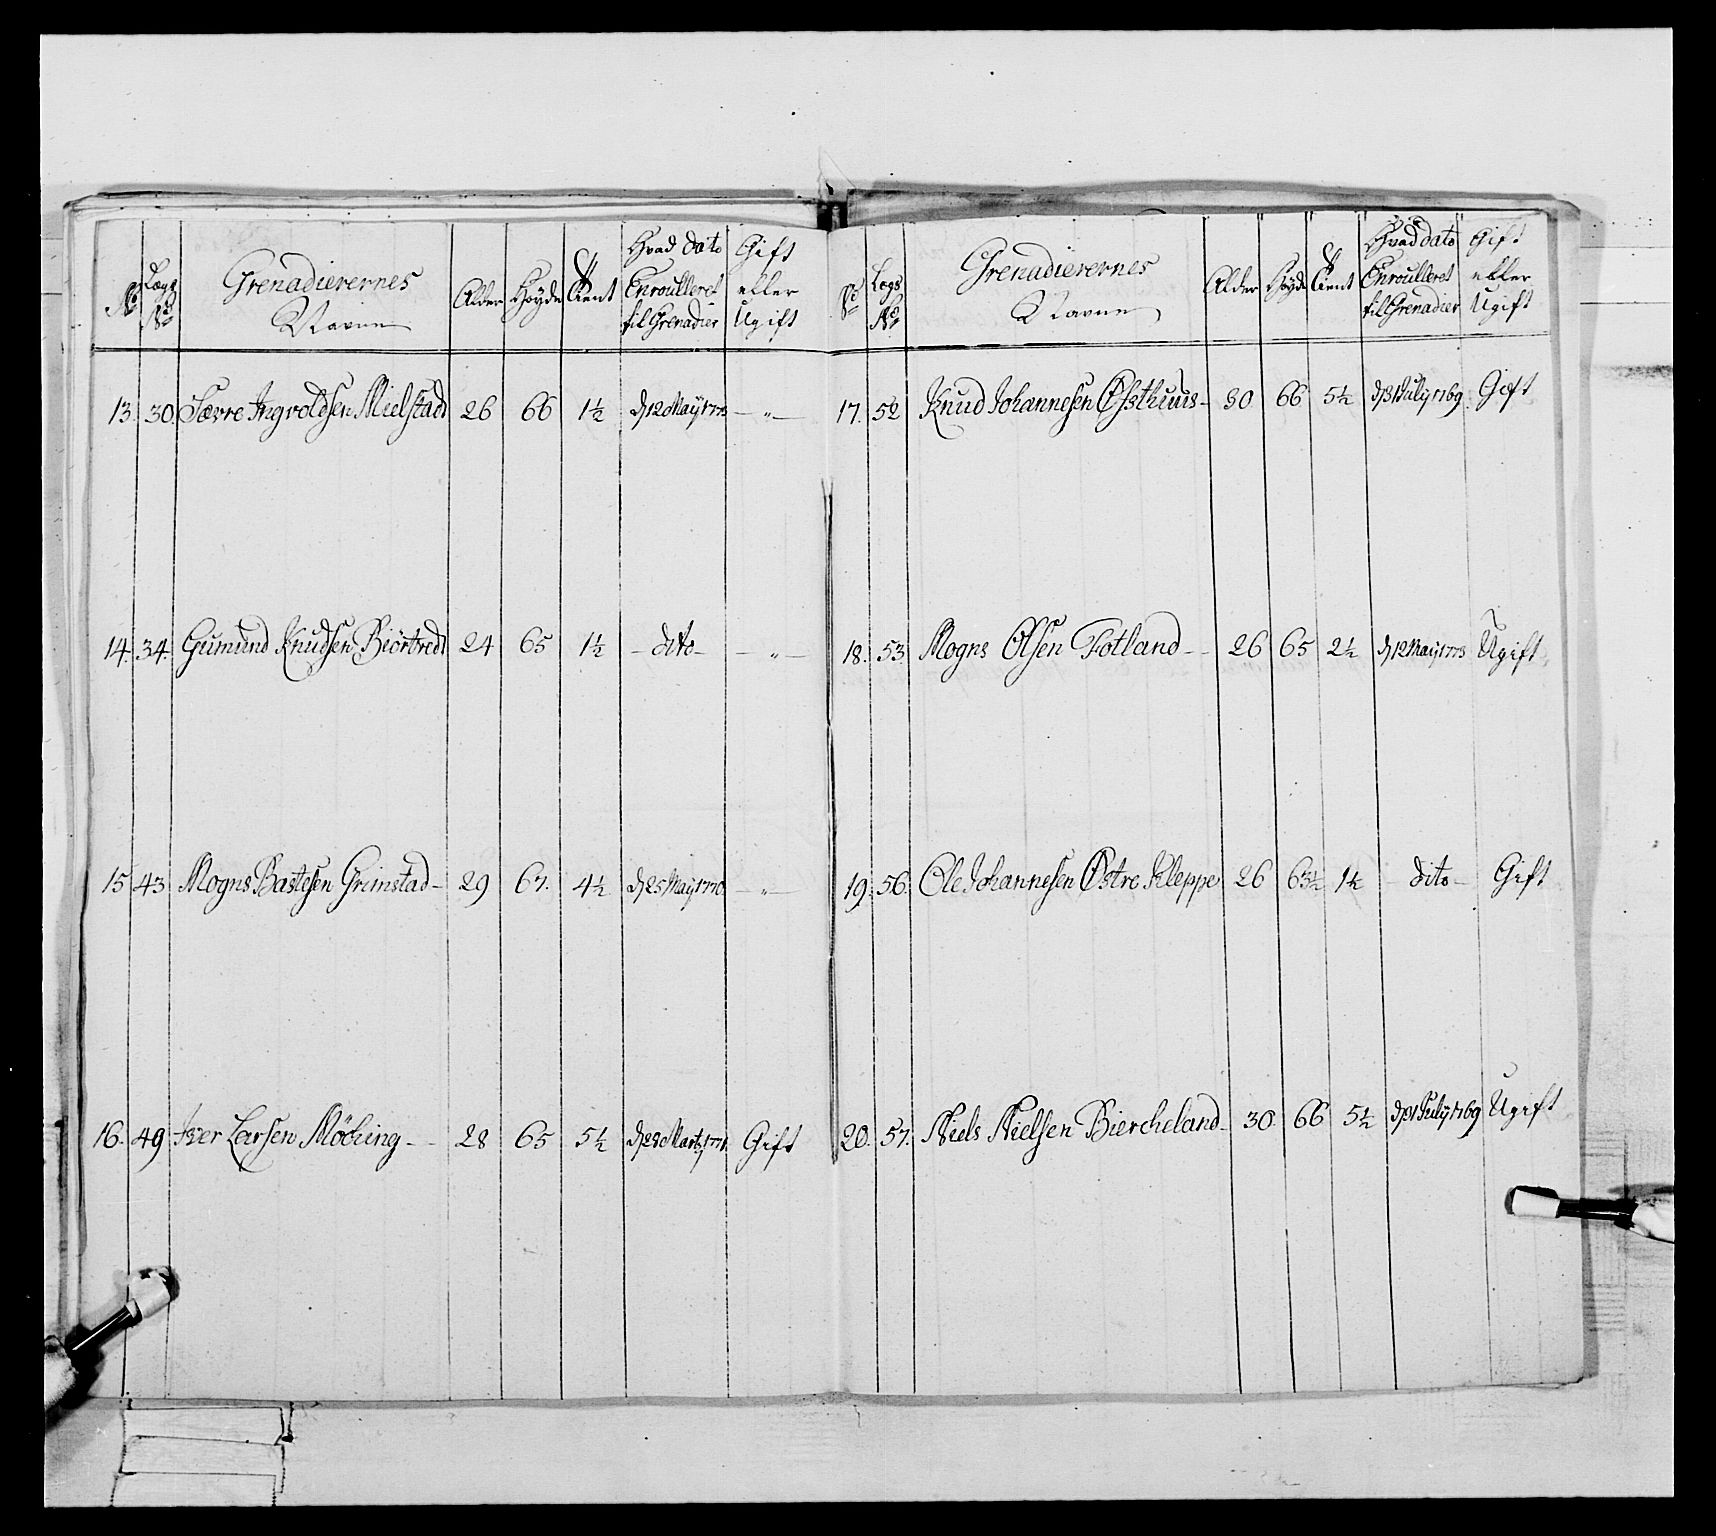 No Lægs No Grenadierernes Navne Alder Høyde Tient Hvad dato Enroulleret til Grenadier Gift eller Ugift
13. 30. Sævre Ingvoldsen Mielstad 26 66 1½ d 12 May 177 — " —
14. 34. Gumund Knudsen Biørtvedt 24 65 1½ — dito — — " —
15 43 Mogns Bastesen Grimstad — 29 67. 4½ d 25 May 1770 — " —
16. 49 Iver Larsen Möching — 28 65 5½ Martz Gift
No Lægs No Grenadierernes Navne Alder Høyde Tient Hvad dato Enroulleret til Grenadier Gift eller Ugift
17. 52 Knud Johannesen Østhuus — 30 66 5½ d 31 July 1769 Gift
18. 53 Mogns Olsen Fotland — 26 65 2½ d 12 May 1773 Ugift
19. 56. Ole Johannesen Østre Kleppe 26 63½ 1½ — dito — Gift
20. 57. Niels Nielsen Biercheland — 30 66 5½ d 31 July 1769 Ugift